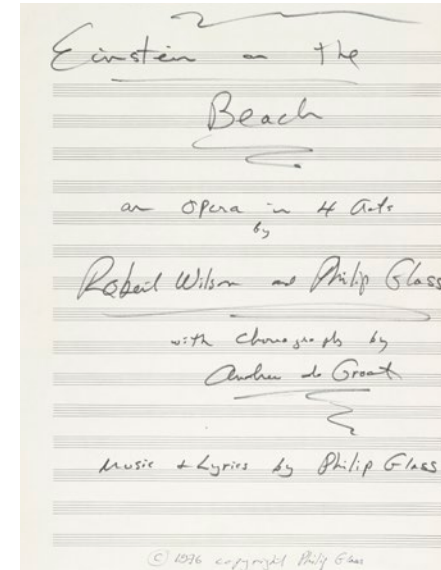 Einstein on the
Beach
an Opera in 4 Acts
by
Robert Wilson and Philip Glass
with Choreography by
Andrew de Groat
Music + Lyrics by Philip Glass
© 1976 copyright Philip Glass